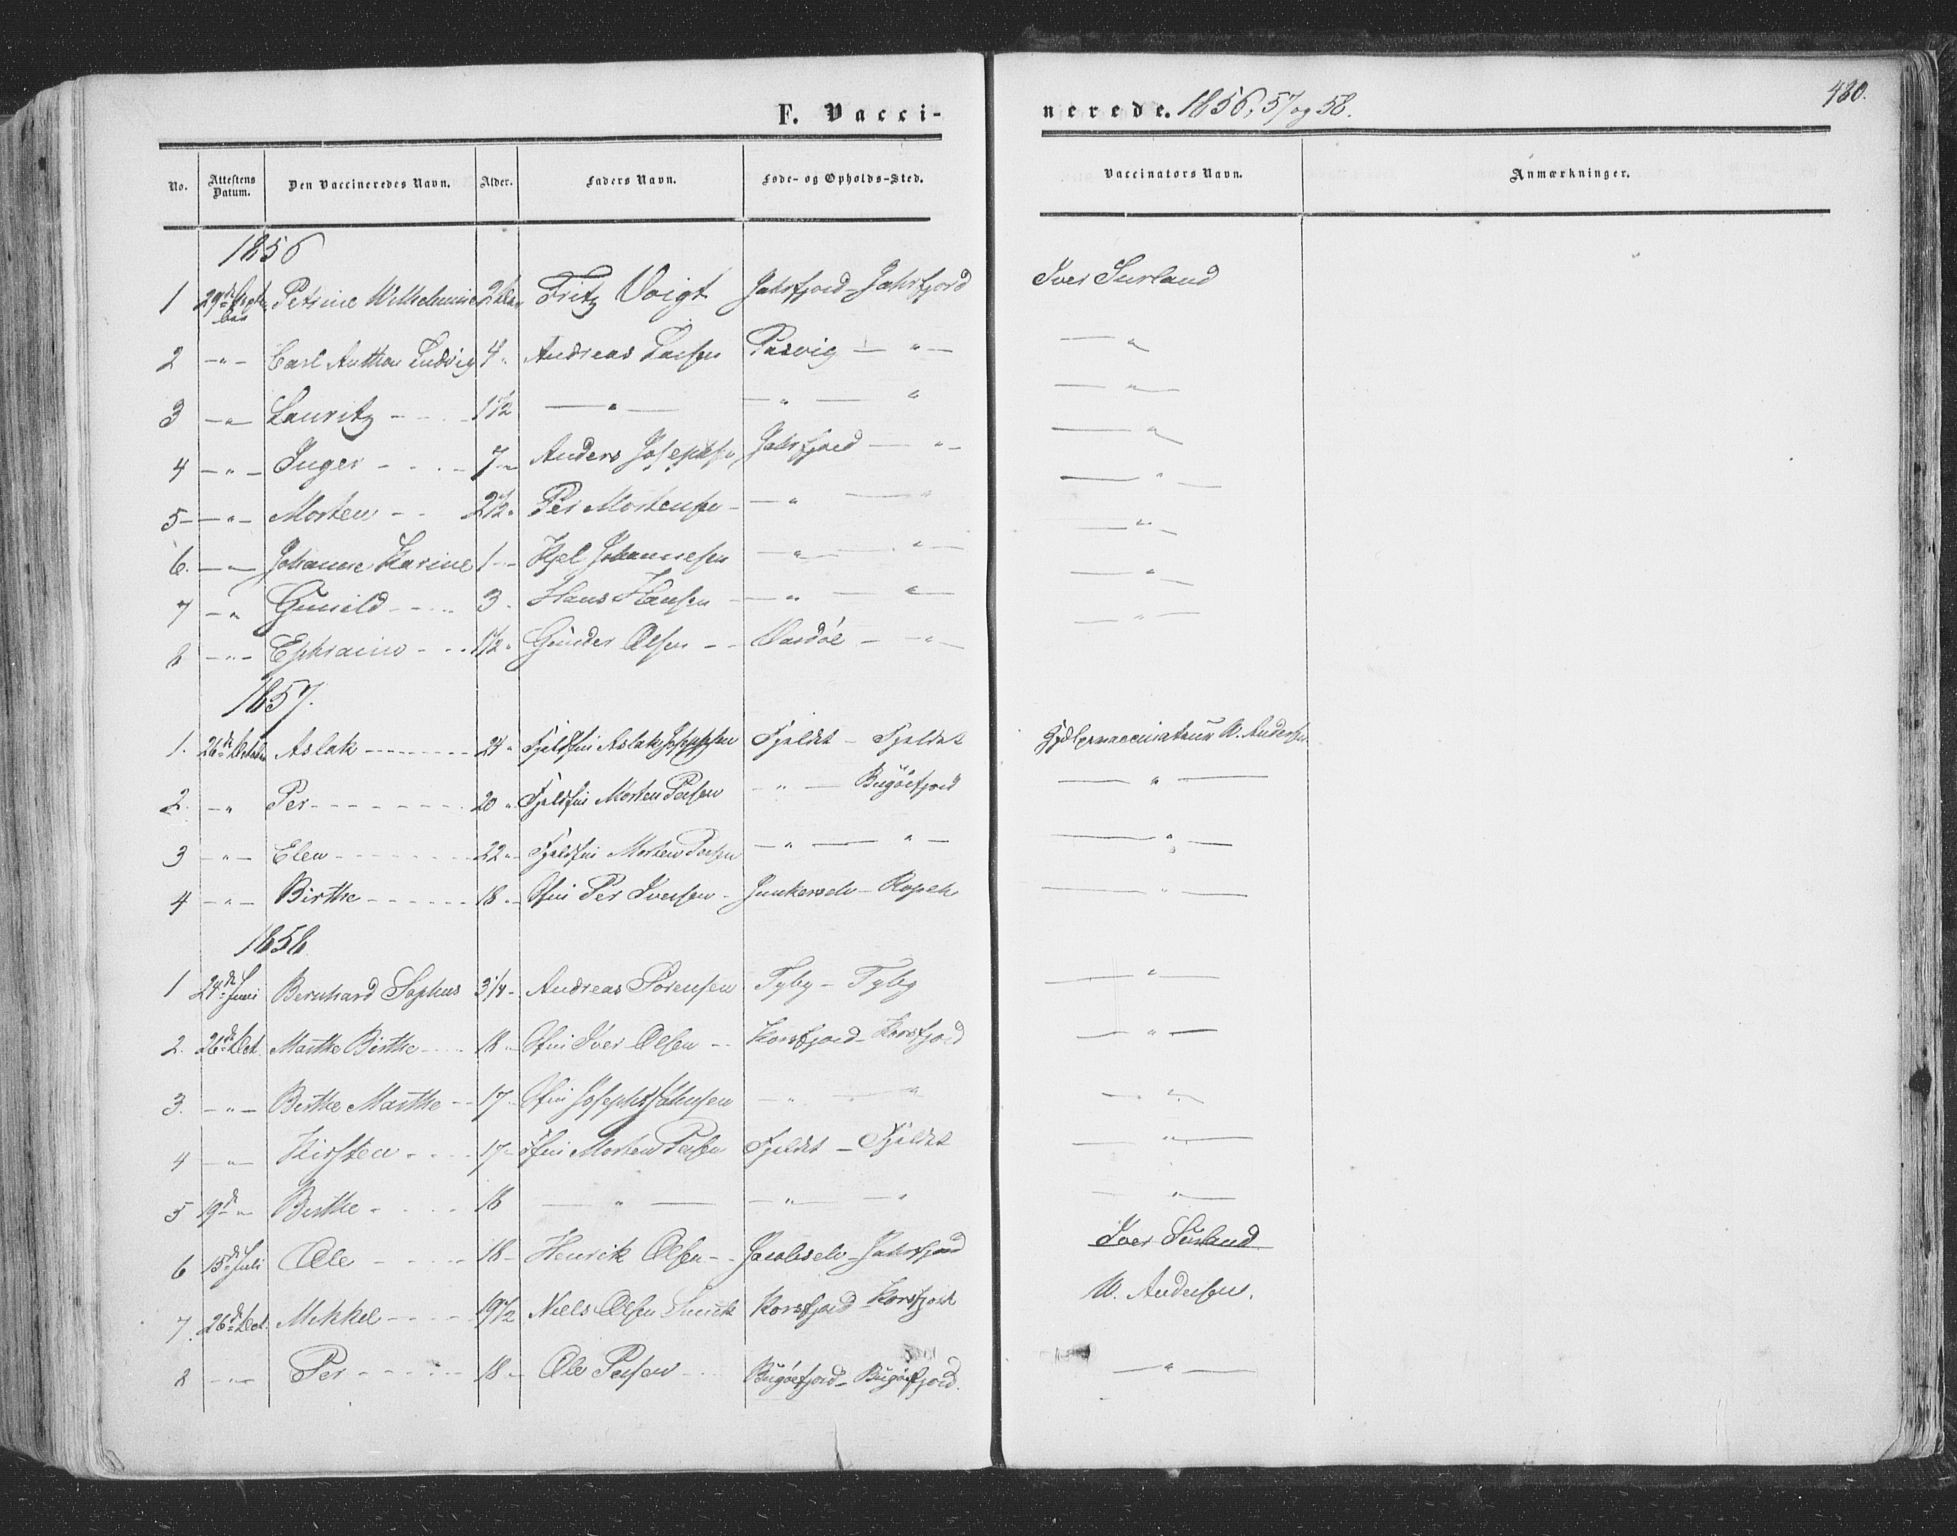 F. Vaccinerede. 1856, 57 og 58.
480.
No. Attestens Datum. Den Vaccineredes Navn. Alder. Faders Navn. Føde- og Opholds-Sted. Vaccinators Navn. Anmærkninger.
1856
1 29de Septbr Petrine Wilhelmine 2 Fritz Voigt Jahrfjord - Jahrfjord Iver Surland
2 -"- Carl Anthon Ludvig 4 " Andreas Pasvig - " - - " -
3 -"- Lauritz - - 1 1/2 - " - - " - " - " -
4 -"- Inger - - - 7 - Anders Josephsen Jahrfjord - " - - " -
5 -"- Morten - - 2 1/2 " Per Mortensen - - " - " - " -
6. -"- Johanne Karine 1 - Kjel Johannesen - " - " - - " -
7 -" Gunild - - - 3 " Hans Hansen - " - " - - " -
8 -"- Ephraim - - - 1 1/2 " Gunder Olsen - - Vardöe - " - - " -
1857.
1. 26de October Aslak - - - 24 " Fjeldfin Aslak Josephsen Fjeldet - Fjeldet W. Andersen
2. -" Per - - - 20 " Fjeldfin Morten Persen " - Bugöefjord - " -
3 -"- Elen - - - 22 " Fjeldfin Morten Persen - " - " - - " -
4 -"- Birthe - - - 18 " Sfin Per Iversen - Junkerselv - Ropelv - " -
1858
1 24de Juni Bernhard Sophus 3/4 - Andreas Sörensen Fyby - Fyby - " -
2. 26de Oct. Marthe Birthe - - 18 " Sfin Iver Olsen - - Korsfjord - Korsfjord - " -
3. -"- Birthe Marthe - - 17 " Sfin Joseph Johnsen - " - " - " -
4 -"- Kirsten - - - 17 - Ffin Morten Persen Fjeldet - Fjeldet - " -
5 19de " Birthe - - - 18 - " - - " - " - " -
6 15de Juli Ole - - - 18 - Henrik Olsen - - Jacobselv - Jahrfjord Iver Surland
7. 26de Oct. Mikkel - - - 19 1/2 Niels Olsen Korsfjord - Korsfjord W. Andersen.
8 -"- Per - - - 18 - Ole Persen - - Bugöefjord - Bugöefjord. - " -